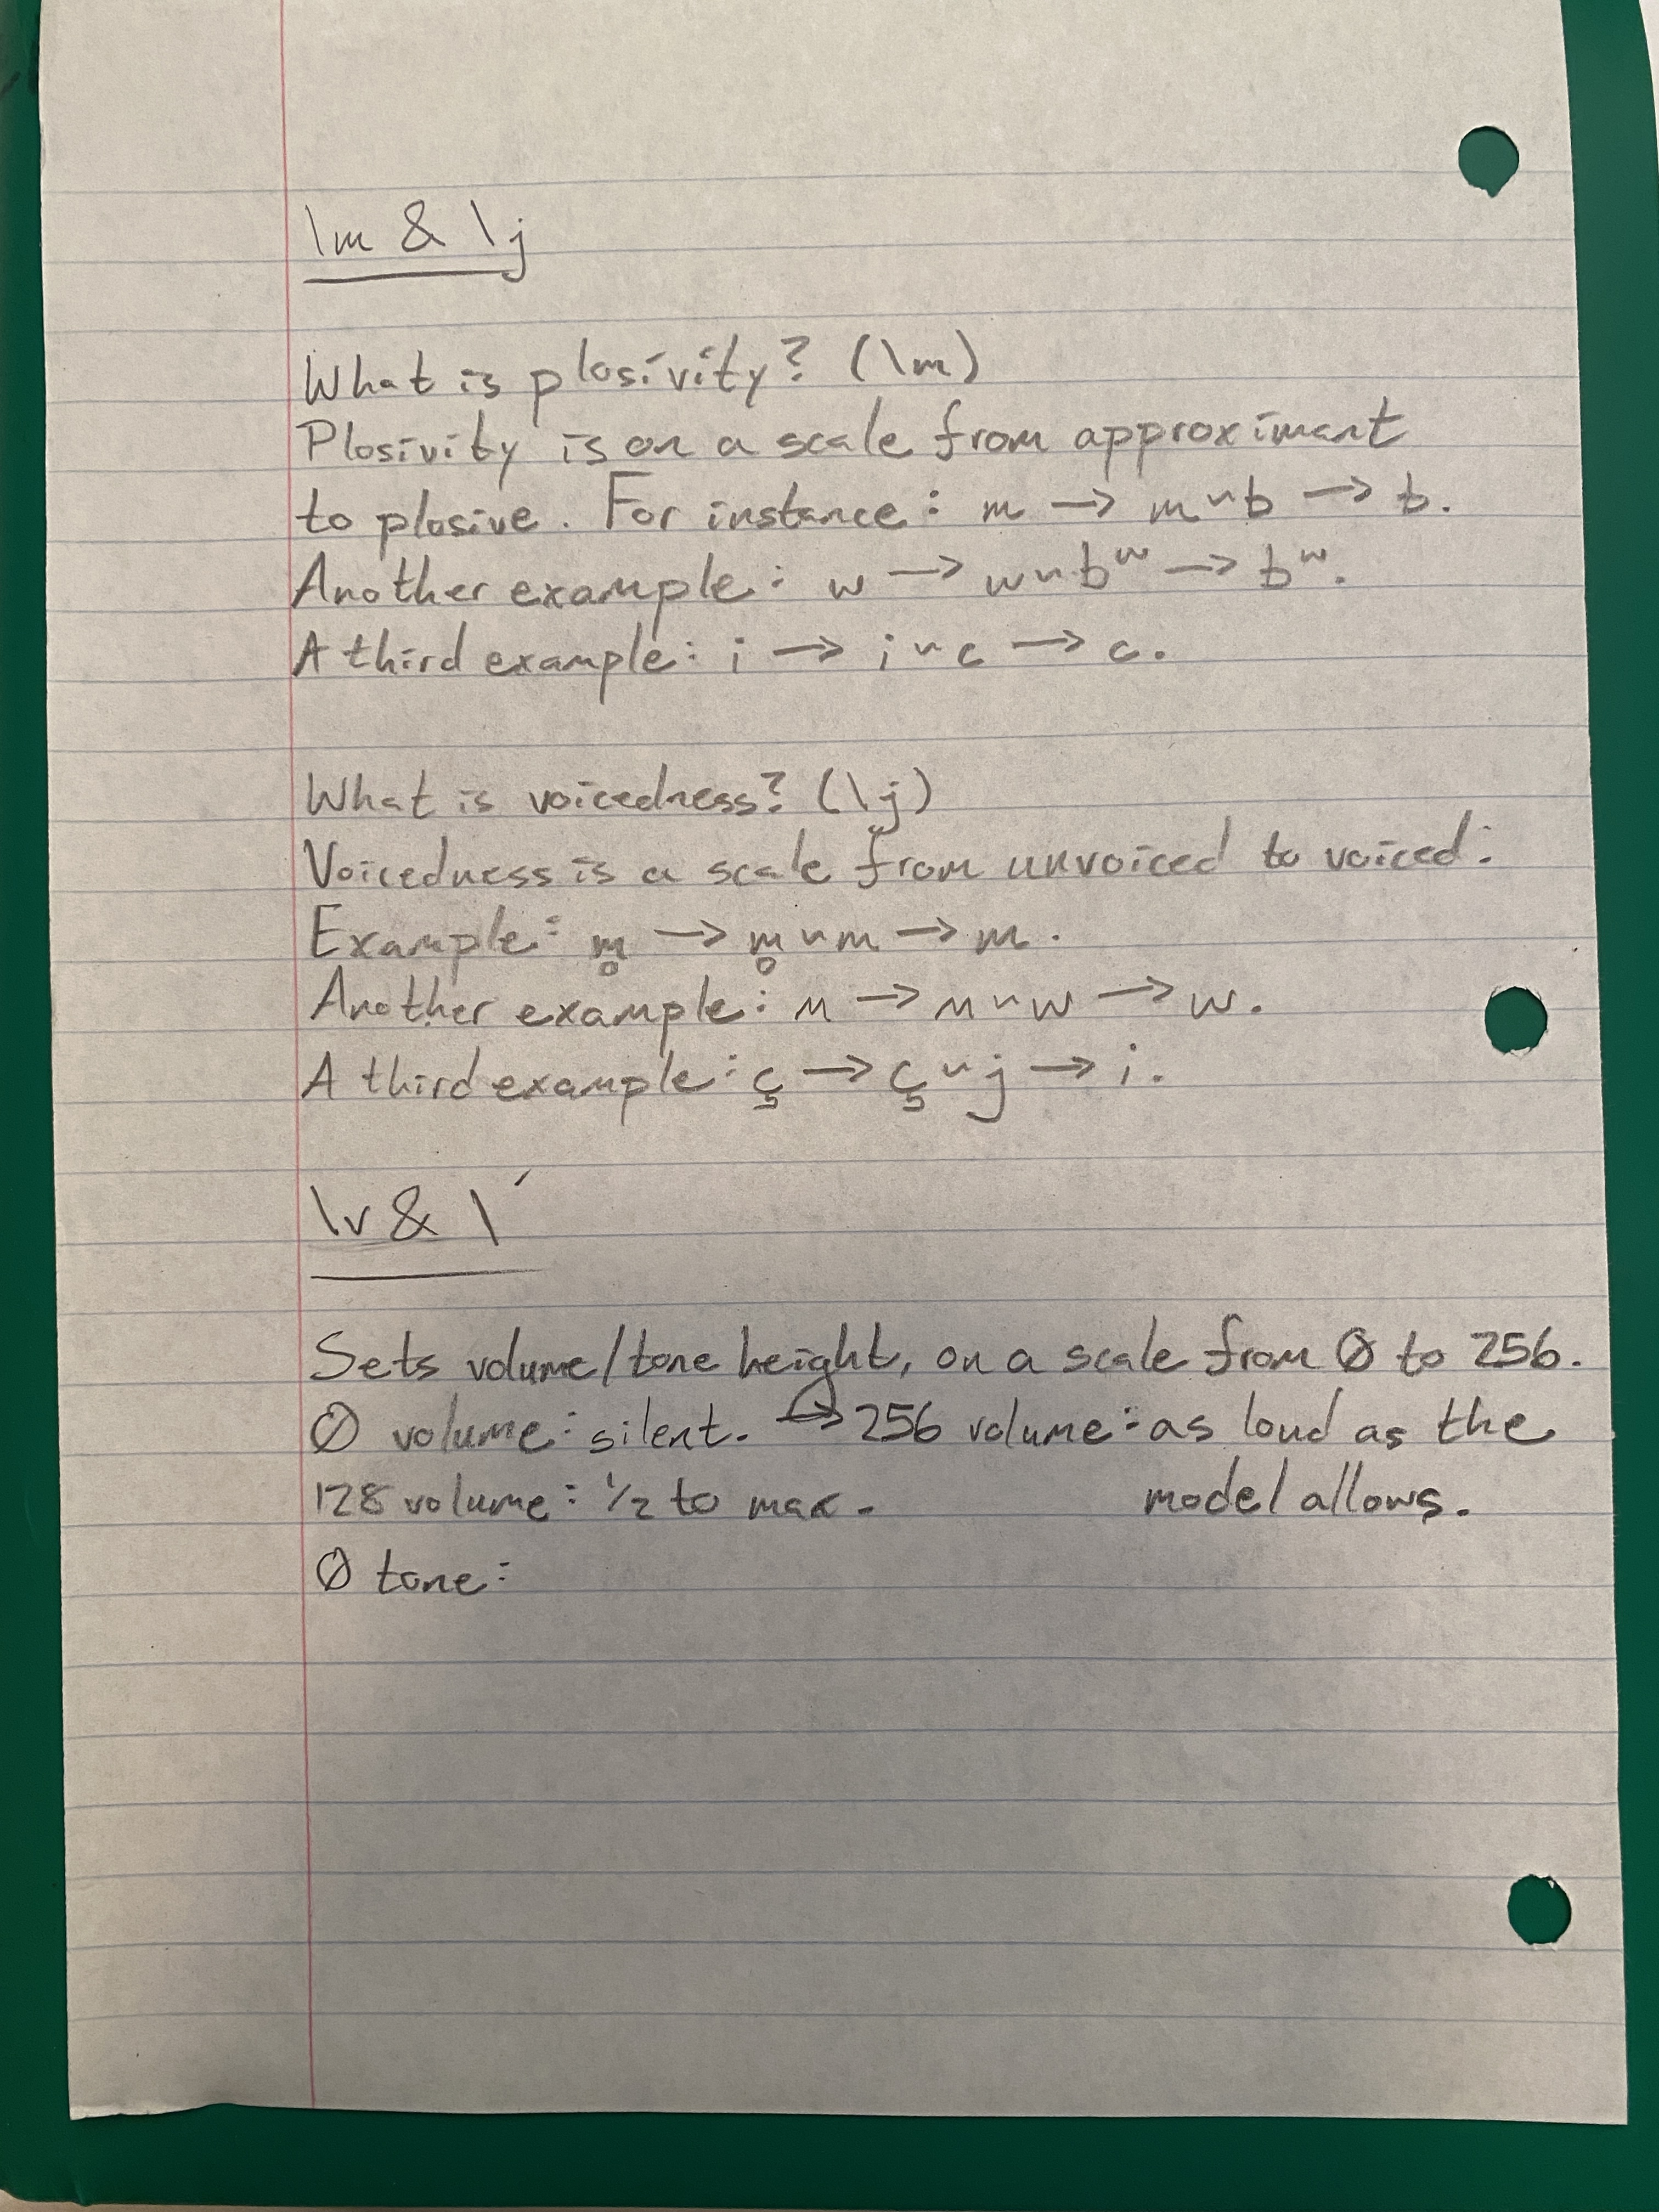 \m & \j
What is plosivity? (\m)
Plosivity is on a scale from approximant
to plosive. For instance: m → m~b → b.
Another example: w → w~bʷ → bʷ.
A third example: i → i~c → c.
What is voicedness? (\j)
Voicedness is a scale from unvoiced to voiced.
Example: m̥ → m̥~m → m.
Another example: ʍ → ʍ~w → w.
A third example: ç → ç~j → i.
\v & \´
Sets volume/tone height, on a scale from Ø to 256.
Ø volume: silent. → 256 volume: as loud as the
128 volume: ½ to max. model allows.
Ø tone: